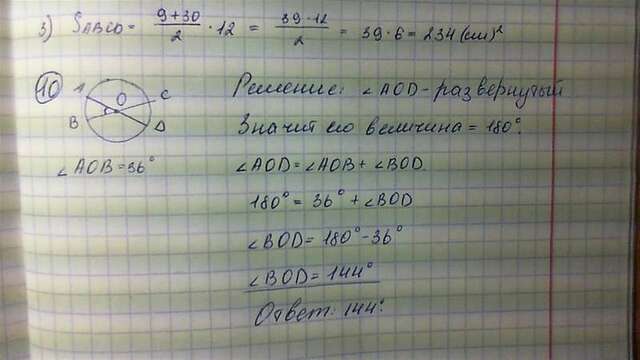 3) SABCD = 9+30/2 · 12 = 39·12/2 = 39·6 = 234 (см)²
10
A
O
C
B
D
∠AOB=36°
Решение: ∠AOD - развернутый
Значит его величина = 180°.
∠AOD=∠AOB+∠BOD
180° = 36° + ∠BOD
∠BOD= 180°-36°
∠BOD = 144°
Ответ: 144°